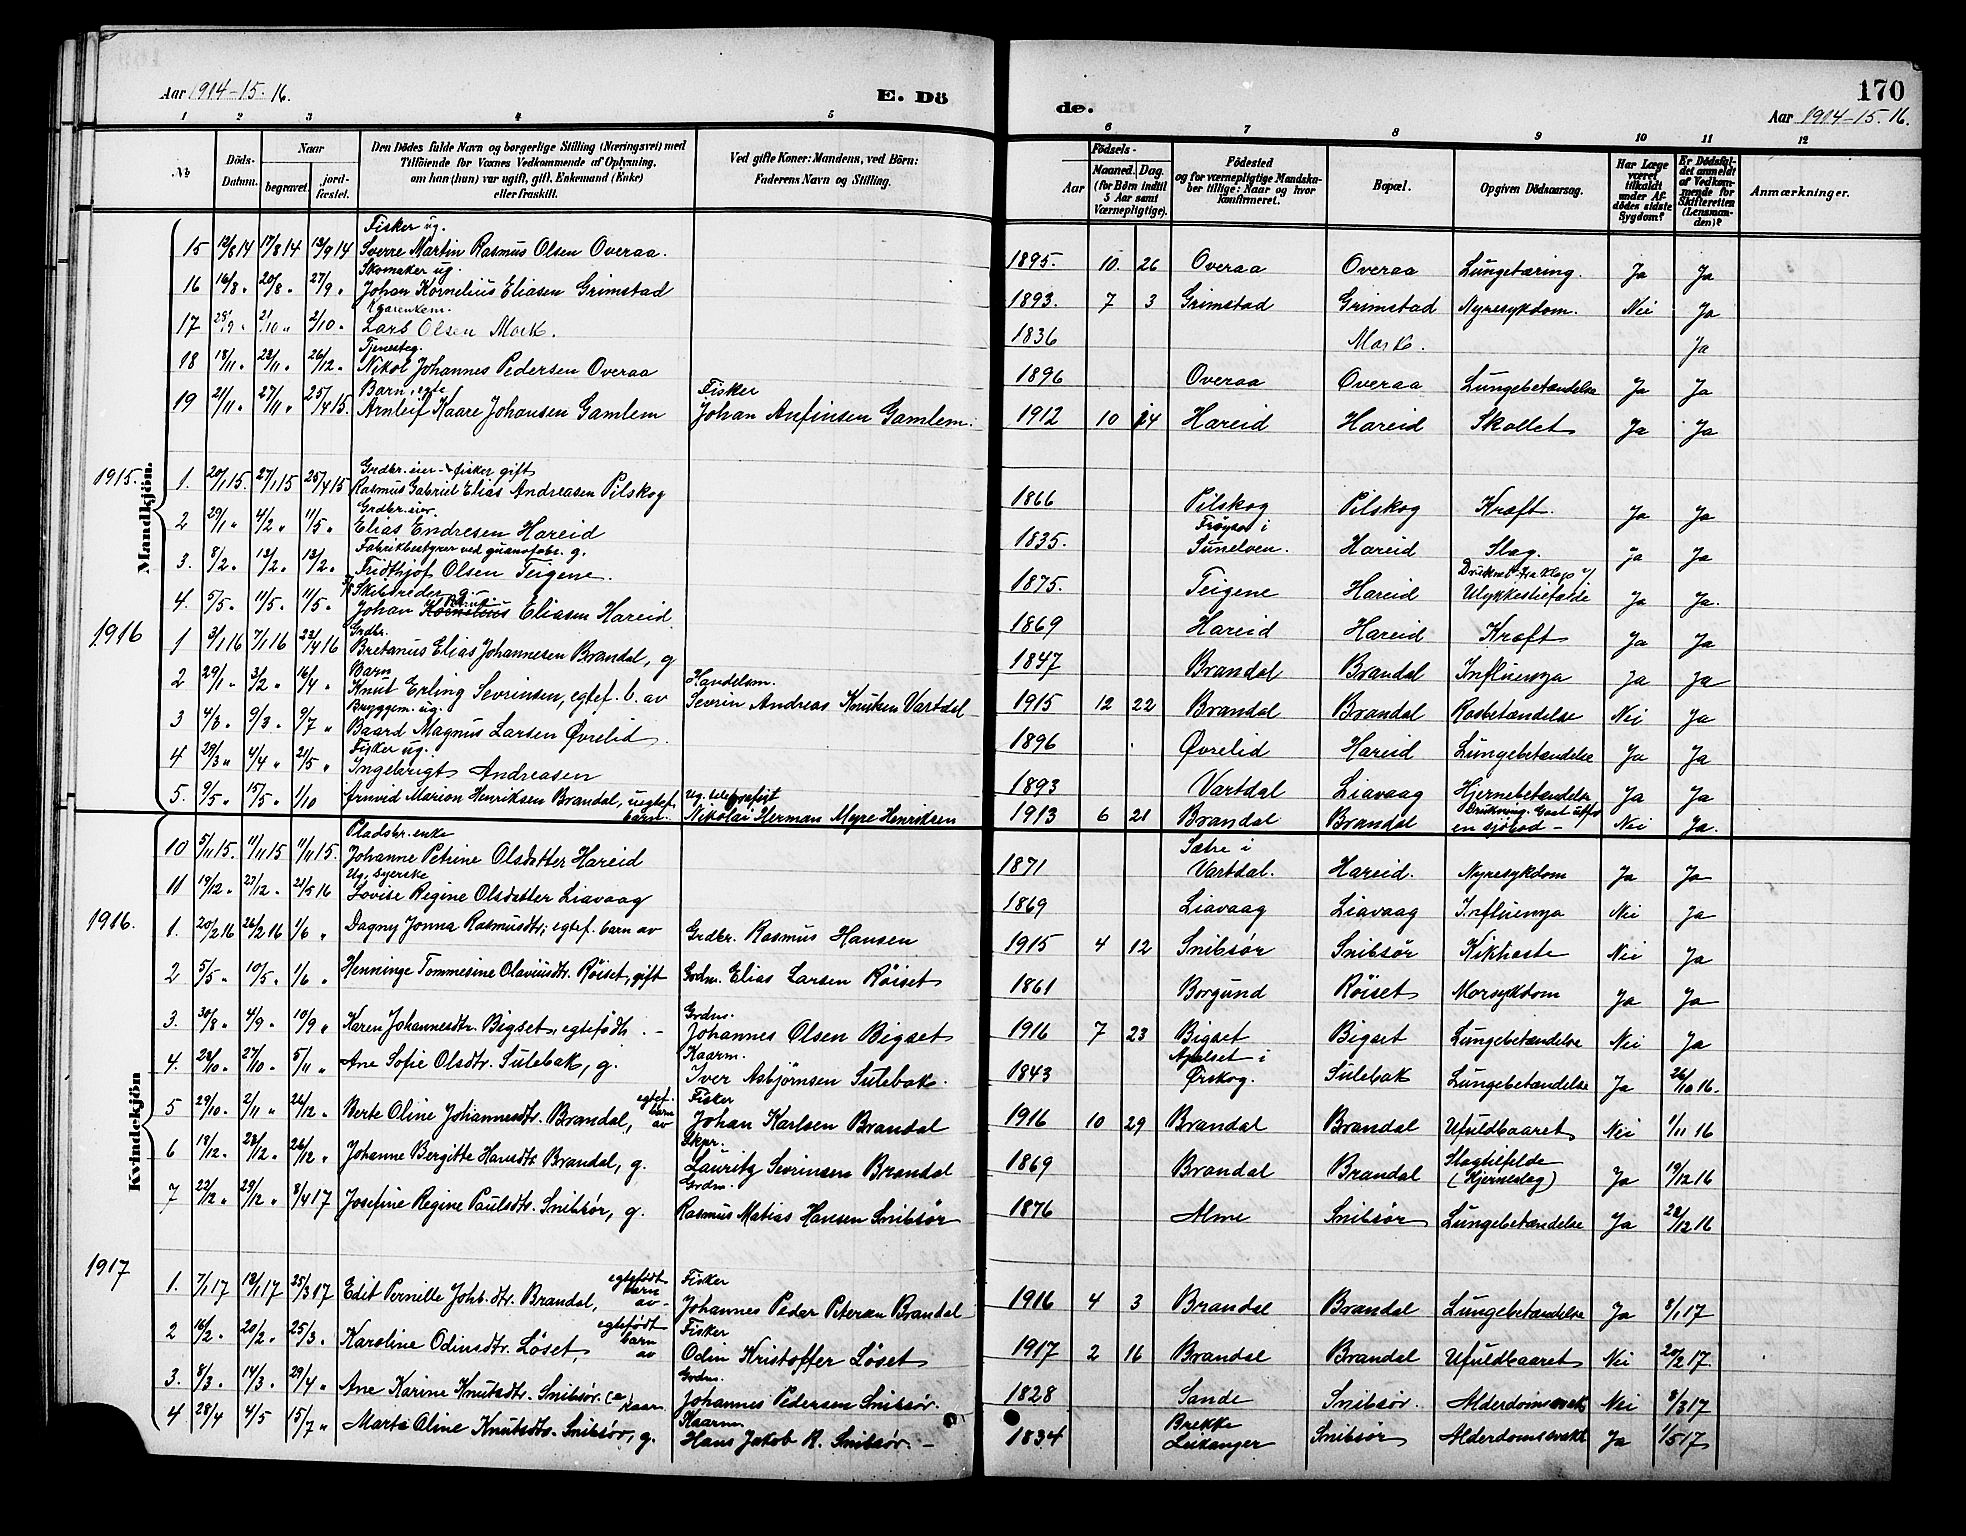 Aar 1914-15. 16.
E. Dö
de.
170
Aar 1914-15. 16.
1 2 3 4 5 6 7 8 9 10 11 12
No
Döds-Datum.
Naar
begravet.
jord-fæstet.
Den Dödes fulde Navn og borgerlige Stilling (Næringsvei) med
Tilföiende for Voxnes Vedkommende af Oplysning,
om han (hun) var ugift, gift, Enkemand (Enke)
eller fraskilt.
Ved gifte Koner: Mandens, ved Börn:
Faderens Navn og Stilling.
Födsels-
Aar
Maaned. Dag.
(for Börn indtil
5 Aar samt
Værnepligtige).
Födested
og for værnepligtige Mandska-
ber tillige: Naar og hvor
konfirmeret.
Bopæl.
Opgiven Dödsaarsag.
Har Læge
været
tilkaldt
under Af-
dödes sidste
Sygdom?
Er Dödsfal-
det anmeldt
af Vedkom-
mende for
Skifteretten
(Lensman-
den)?
Anmærkninger.
Fisker ug.
15 12/8 14 17/8 14 13/9 14 Sverre Martin Rasmus Olsen Overaa. 1895. 10. 26 Overaa Overaa Lungetæring. Ja Ja
Skomaker ug.
16 16/8 " 20/8 " 27/9 " Johan Kornelius Eliasen Grimstad 1893. 7 3 Grimstad Grimstad Nyresykdom. Nei Ja
17 2/10 " Lars Olsen Mork. 1836 Mork. Ja
Tjenesteg.
18 18/11 " 28/11 " 26/12 " Nikol Johannes Pedersen Overaa 1896 Overaa Overaa Lungebetændelse Ja Ja
Barn, egte Fisker
19 21/11 " 27/11 " 25/4 15. Arnleif Kaare Johansen Gamlem Johan Anfinsen Gamlem. 1912 10 Hareid Hareid Skollet Ja Ja
1915.
Mandkjön.
Grdbr. eier - fisker gift
1. 20/1 15. 27/1 15 25/4 15 Rasmus Gabriel Elias Andreasen Pilskog 1866 Pilskog Pilskog Kræft. Ja Ja
Grdbr. eier.
2 29/1 " 4/2 " 11/5 " Elias Endresen Hareid 1835. Frøysa i Sunelven. Hareid Slag. ja Ja
Fabrikbestyrer ved guanofabr. g.
3. 8/2 " 13/2 " 13/2 " Fridthjof Olsen Teigene. 1875. Teigene Hareid Ulykkestilfælde Ja Ja.
Skibsreder g.
4. 5/5 " 11/5 " 11/5 " Johan Kornelius Eliasen Hareid. 1869 Hareid Hareid Kræft Ja Ja
1916
Grdbr.
1 3/1 16 7/1 16 23/4 16 Bretanus Elias Johannesen Brandal, g 1847 Brandal Brandal Influenza Ja Ja
Barn Handelsm.
2 29/1 " 3/2 " 16/4 " Knut Erling Sevrinsen, egtef. b. av Severin Andreas Knutsen Vartdal 1915 12 22 Brandal Brandal Rosbetændelse Nei Ja
Byggem. ug.
3 4/3 " 9/3 " 9/7 " Baard Magnus Larsen Øvrelid. 1896 Øvrelid Hareid Lungebetændelse Ja Ja
Fisker ug.
4 29/3 " 4/4 " 21/5 " Ingebrigt Andreasen 1893 Vartdal Liavaag Hjernebetændelse Ja Ja
ug. telegrafist
5. 9/5 " 15/5 " 1/10 Arnvid Marion Henriksen Brandal, uegtef. barn. Nikolai Herman Meyre Henriksen 1913 6 21 Brandal Brandal Drukning. Gaat utfor en sjøbod - Nei Ja.
Pladsbr. enke
10 5/11 15. 11/11 15 11/11 15. Johanne Petrine Olsdatter Hareid 1871 Sætre i Vartdal. Hareid. Nyresykdom Ja Ja
Ug. syerske
11 19/12 " 27/12 " 21/5 16 Lovise Regine Olsdatter Liavaag 1869 Liavaag Liavaag Influenza Nei Ja
1916.
Kvindekjön
1. 20/2 16 26/2 16 1/6 " Dagny Jonna Rasmusdtr; egtef. barn av Grdbr. Rasmus Hansen 1915 4 12 Snibsør Snibsør Kikhoste Nei Ja
2 5/5 " 10/5 " 1/6 " Henninge Tommesine Olaviusdtr. Røiset, gift Grdm. Elias Larsen Røiset 1861 Borgund Røiset Morsykdom Ja Ja
Grdm.
3. 30/8 " 4/9 " 10/9 " Karen Johannesdtr. Bigset, egtefødt. - Johannes Olsen Bigset 1916 7 23 Bigset Bigset Lungebetændelse Nei Ja
Kaarm.
4. 23/10 " 27/10 " 5/11 " Ane Sofie Olsdtr. Sulebak, g. Iver Asbjørnsen Sulebak. 1843 Apalset i Ørskog. Sulebak Lungebetændelse Ja 26/10 16.
Fisker
5 29/10. 2/11 " 26/12 " Berte Oline Johannesdtr. Brandal, egtef. barn av Johan Karlsen Brandal 1916 10 29 Brandal Brandal Ufuldbaaret Nei 1/11 16
Skpr.
6 18/12. 23/12. 26/12 " Johanne Bergitte Hansdtr. Brandal, g. Lauritz Sevrinsen Brandal 1869 Brandal Brandal Slagtilfelde (Hjerneslag) Ja 19/12 16
Grdm.
7 22/12 " 29/12 " 8/4 17 Josefine Regine Paulsdtr. Snibsør, g. Rasmus Matias Hansen Snibsør 1876 Alme Snibsør Lungebetændelse Ja 28/12 16
1917
Fisker
1. 7/1 17 12/1 17 25/3 17 Edit Pernille Johs.dtr. Brandal, egtefødt barn av- Johannes Peder Petersen Brandal 1916 4 3 Brandal Brandal Lungebetændelse Ja 8/1 17
Fisker
2 16/2. 20/2. 25/3. Karoline Odinsdtr. Løset, egtefødt barn av Odin Kristoffer Løset 1917 2 16 Brandal Brandal Ufuldbaaret Nei 20/2 17.
Grdm.
3. 8/3. 14/3. 29/4 " Ane Karine Knutsdtr. Snibsør. (e kaarm. Johannes Pedersen Snibsør. 1828 Sande Snibsør. Alderdomssvak Nei 8/3 17
Kaarm
4 28/4 4/5 15/7 " Marta Oline Knutsdtr. Snibsør, g. Hans Jakob R. Snibsør. - 1834 Brekke Leikanger Snibsør Alderdomssvakt Ja 1/5 17